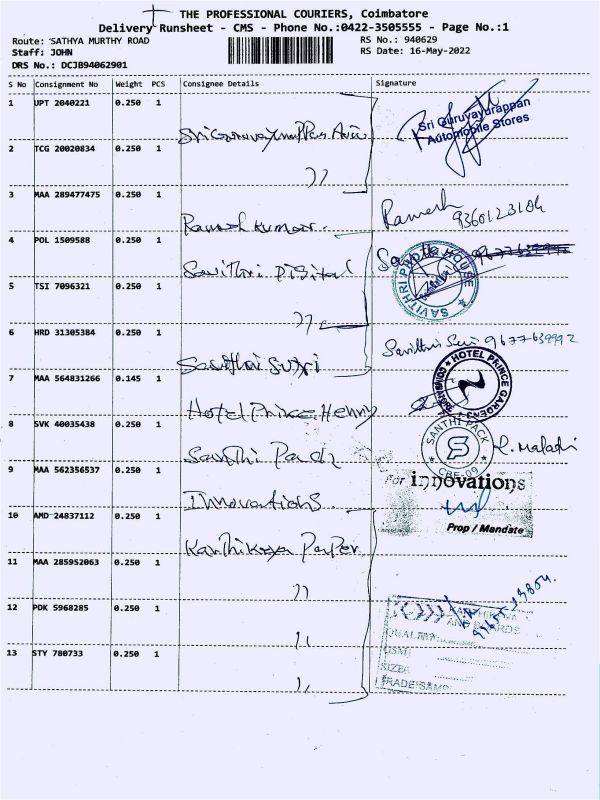 THE PROFESSIONAL COURIERS, Coimbatore
Delivery Runsheet - CMS - Phone No.:0422-3505555 - Page No.:1
Route: SATHYA MURTHY ROAD
RS No.: 940629
Staff: JOHN
RS Date: 16-May-2022
DRS No.: DCJB94062901
S No Consignment No Weight PCS Consignee Details Signature
1 UPT 2040221 0.250 1
Sri Guruvayurappan
Automobile Stores
2 TCG 20020834 0.250 1
,,
3 MAA 289477475 0.250 1
Ramesh Kumar.
Ramesh
9360123104
4 POL 1509588 0.250 1
Savithri Digital
SAVITHRI PHOTO HOUSE
5 TSI 7096321 0.250 1
,,
6 HRD 31305384 0.250 1
Savithri Suri
Savithri Suri 9677639992
7 MAA 564831266 0.145 1
Hotel Prince Henry
HOTEL PRINCE GARDENS
8 SVK 40035438 0.250 1
Santhi Pack
SANTHI PACK
S
CBE-09
R. Malathi
9 MAA 562356537 0.250 1
Innovations
For innovations
Prop / Mandate
10 AMD 24837112 0.250 1
Karthikeya Paper
11 MAA 285952063 0.250 1
,,
12 PDK 5968285 0.250 1
,,
AND BOARDS
QUALITY
GSM
SIZE
TRADE SAMP
13 STY 780733 0.250 1
,,